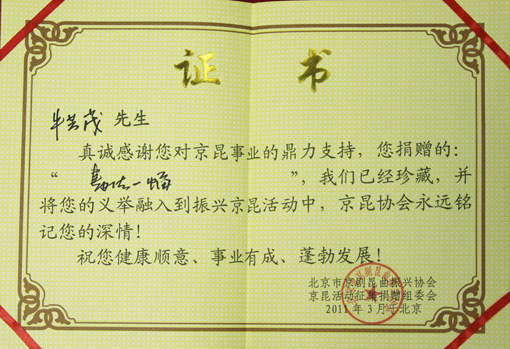 证 书
牛芸茂 先生
真诚感谢您对京昆事业的鼎力支持，您捐赠的：
“ 书法一幅 ”，我们已经珍藏，并
将您的义举融入到振兴京昆活动中，京昆协会永远铭
记您的深情！
祝您健康顺意、事业有成、蓬勃发展！
北京市京剧昆曲振兴协会
京昆活动征集捐赠组委会
2011 年 3 月于北京